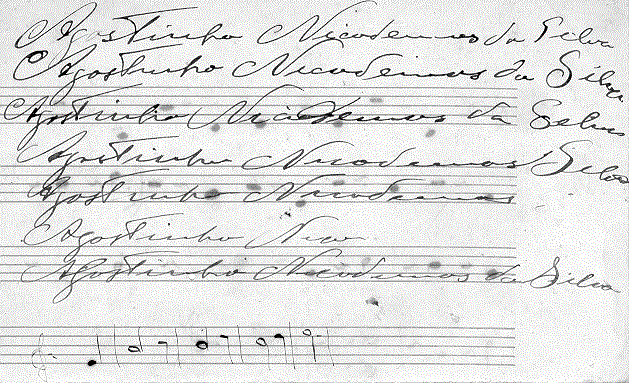 Agostinho Nicodemos da Silva
Agostinho Nicodemos da Silva
Agostinho Nicodemos da Silva
Agostinho Nicodemos Silva
Agostinho Nicodemos
Agostinho Nico
Agostinho Nicodemos da Silva